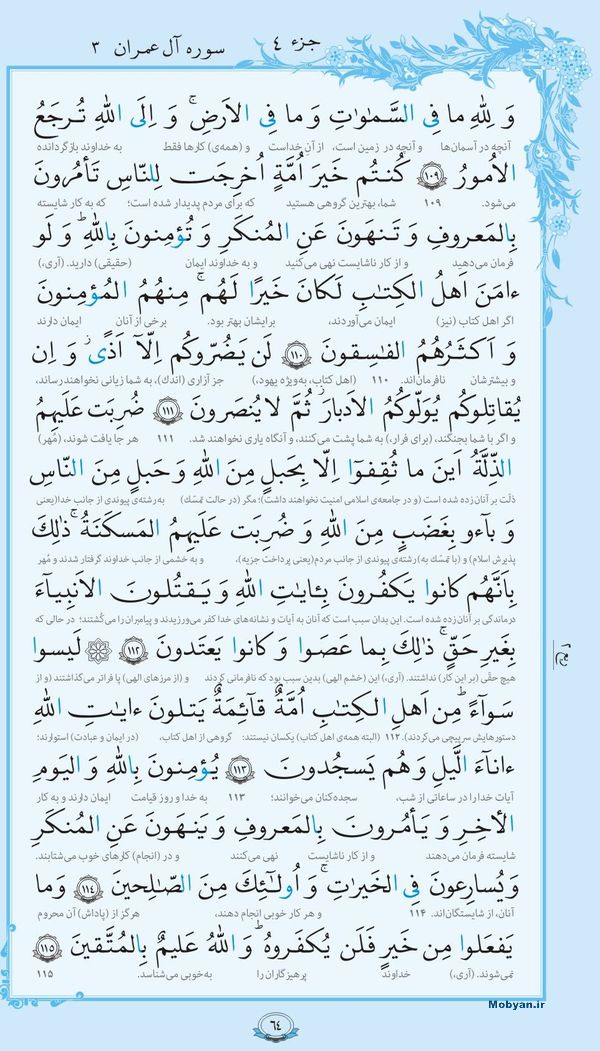 جزء ٤
سوره آل عمران ٣
وَ لِلّٰهِ ما فِی السَّمٰوٰتِ وَ ما فِی الاَرضِ ۚ وَ اِلَی اللّٰهِ تُرجَعُ
آنچه در آسمان‌ها و آنچه در زمین است، از آنِ خداست و (همه‌ی) کارها فقط به خداوند بازگردانده
الاُمورُ ١٠٩ کُنتُم خَیرَ اُمَّةٍ اُخرِجَت لِلنّاسِ تَأمُرونَ
می‌شود. ١٠٩ شما، بهترین گروهی هستید که برای مردم پدیدار شده است؛ که به کار شایسته
بِالمَعروفِ وَ تَنهَونَ عَنِ المُنکَرِ وَ تُؤمِنونَ بِاللّٰهِ ۗ وَ لَو
فرمان می‌دهید و از کار ناشایست نهی می‌کنید و به خداوند ایمان (حقیقی) دارید. (آری،)
ءامَنَ اَهلُ الکِتٰبِ لَکانَ خَیرًا لَهُم ۚ مِنهُمُ المُؤمِنونَ
اگر اهل کتاب (نیز) ایمان می‌آوردند، برایشان بهتر بود. برخی از آنان ایمان دارند
وَ اَکثَرُهُمُ الفٰسِقونَ ١١٠ لَن یَضُرّوکُم اِلّآ اَذًی ۖ وَ اِن
و بیشترشان نافرمان‌اند. ١١٠ (اهل کتاب، به‌ویژه یهود،) جز آزاری (اندک)، به شما زیانی نخواهند رساند،
یُقاتِلوکُم یُوَلّوکُمُ الاَدبارَ ثُمَّ لا یُنصَرونَ ١١١ ضُرِبَت عَلَیهِمُ
و اگر با شما بجنگند، (برای فرار،) به شما پشت می‌کنند، و آنگاه یاری نخواهند شد. ١١١ هر جا یافت شوند، (مُهر)
الذِّلَّةُ اَینَ ما ثُقِفوٓا اِلّا بِحَبلٍ مِنَ اللّٰهِ وَ حَبلٍ مِنَ النّاسِ
ذلّت بر آنان زده شده است (و در جامعه‌ی اسلامی امنیت نخواهند داشت)؛ مگر (در حالت تمسّک) به رشته‌ی پیوندی از جانب خدا(یعنی
وَ بآءو بِغَضَبٍ مِنَ اللّٰهِ وَ ضُرِبَت عَلَیهِمُ المَسکَنَةُ ۚ ذٰلِكَ
پذیرش اسلام) و (با تمسّک به) رشته‌ی پیوندی از جانب مردم(یعنی پرداخت جزیه)، و به خشمی از جانب خداوند گرفتار شدند و مُهر
بِاَنَّهُم کانوا یَکفُرونَ بِـٔایٰتِ اللّٰهِ وَ یَقتُلونَ الاَنبِیآءَ
درماندگی بر آنان زده شده است. این بدان سبب است که آنان به آیات و نشانه‌های خدا کفر می‌ورزیدند و پیامبران را می‌کُشتند؛ در حالی که
بِغَیرِ حَقٍّ ۚ ذٰلِكَ بِما عَصَوا وَ کانوا یَعتَدونَ ١١٢ لَیسوا
هیچ حقّی (بر این کار) نداشتند. (آری،) این (خشم الهی) بدین سبب بود که نافرمانی کردند و (از مرزهای الهی) پا فراتر می‌گذاشتند (و از
سَوآءً ۗ مِن اَهلِ الکِتٰبِ اُمَّةٌ قآئِمَةٌ یَتلونَ ءایٰتِ اللّٰهِ
دستورهایش سرپیچی می‌کردند). ١١٢ (البته همه‌ی اهل کتاب) یکسان نیستند؛ گروهی از اهل کتاب، (در ایمان و عبادت) استوارند؛
ءانآءَ الَّیلِ وَ هُم یَسجُدونَ ١١٣ یُؤمِنونَ بِاللّٰهِ وَ الیَومِ
آیات خدا را در ساعاتی از شب، سجده‌کنان می‌خوانند؛ ١١٣ به خدا و روز قیامت ایمان دارند و به کار
الأخِرِ وَ یَأمُرونَ بِالمَعروفِ وَ یَنهَونَ عَنِ المُنکَرِ
شایسته فرمان می‌دهند و از کار ناشایست نهی می‌کنند و در (انجام) کارهای خوب می‌شتابند.
وَ یُسارِعونَ فِی الخَیرٰتِ ۚ وَ اُولٰٓئِكَ مِنَ الصّٰلِحینَ ١١٤ وَما
آنان، از شایستگان‌اند. ١١٤ و هر کار خوبی انجام دهند، هرگز از (پاداش) آن محروم
یَفعَلوا مِن خَیرٍ فَلَن یُکفَروهُ ۗ وَ اللّٰهُ عَلیمٌ بِالمُتَّقینَ ١١٥
نمی‌شوند. (آری،) خداوند پرهیزگاران را به‌خوبی می‌شناسد. ١١٥
٦٤
Mobyan.ir